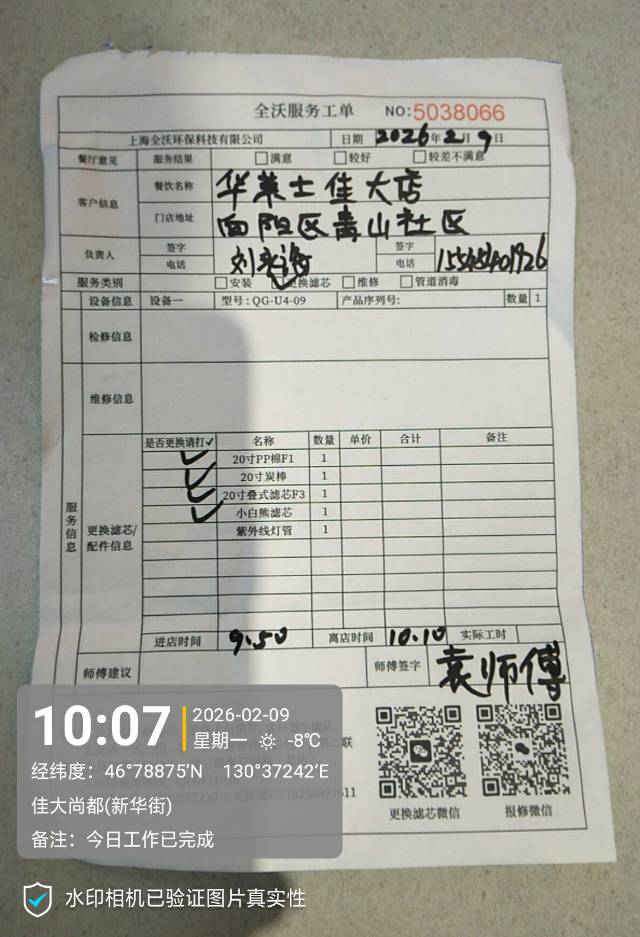 全沃服务工单 NO:5038066
上海全沃环保科技有限公司 日期 2026年2月9日
餐厅意见 服务结果 满意 较好 较差不满意
客户信息 餐饮名称 华莱士佳大店
门店地址 向阳区青山社区
负责人 签字 刘 签字
电话 电话 15545401926
服务类别 安装 更换滤芯 维修 管道消毒
设备信息 设备一 型号:QG-U4-09 产品序列号: 数量 1
检修信息
维修信息
服务信息
更换滤芯/配件信息
是否更换请打✓ 名称 数量 单价 合计 备注
✓ 20寸PP棉F1 1
✓ 20寸炭棒 1
✓ 20寸叠式滤芯F3 1
✓ 小白熊滤芯 1
紫外线灯管 1
进店时间 9.50 离店时间 10.10 实际工时
师傅建议 师傅签字 袁师傅
更换滤芯微信 报修微信
10:07 2026-02-09
星期一 -8℃
经纬度：46°78875′N 130°37242′E
佳大尚都(新华街)
备注：今日工作已完成
水印相机已验证图片真实性